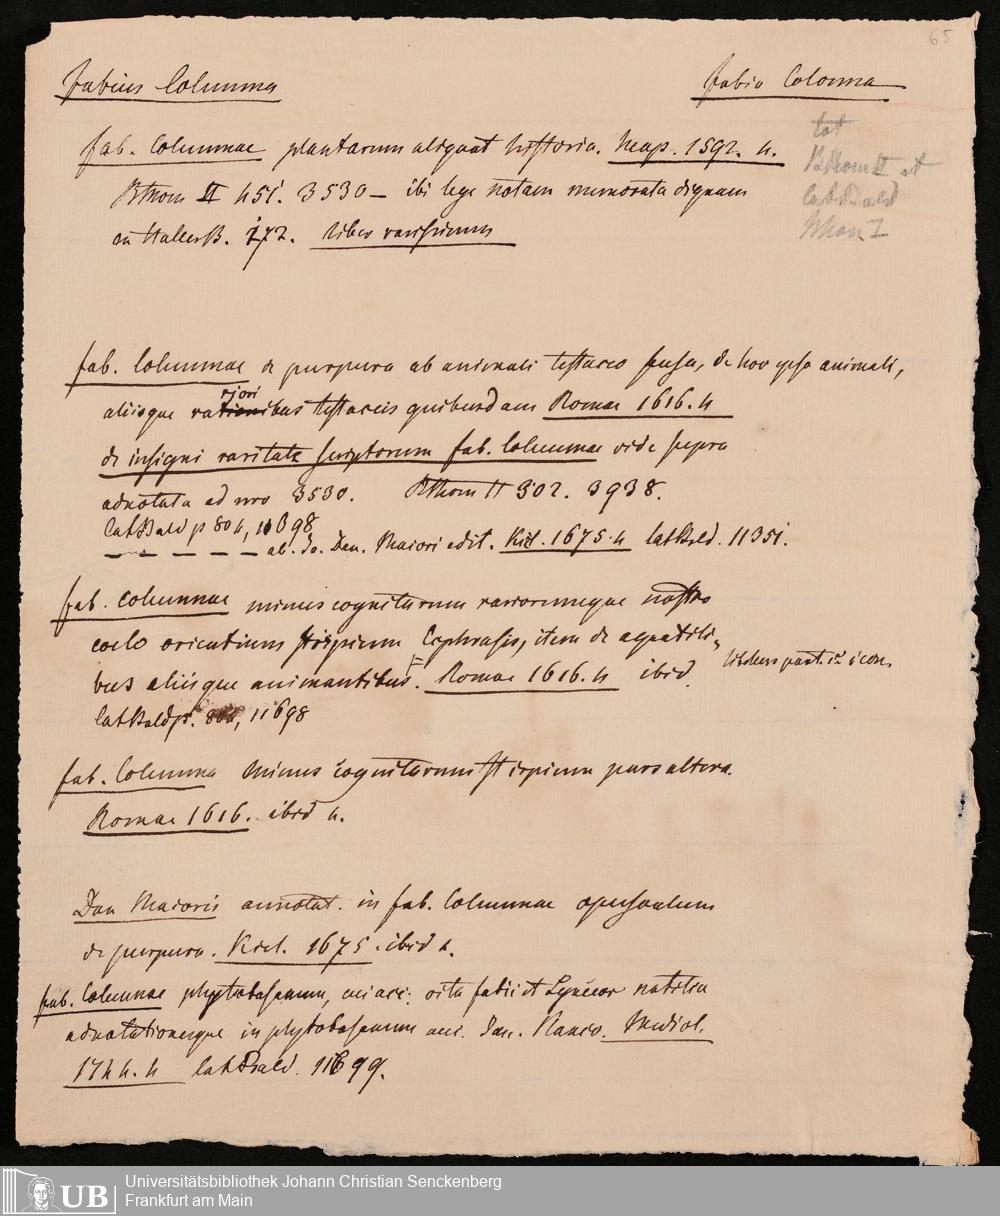 65
Fabius Columna
Fabio Colonna
Fab. Columnae plantarum aliquot historia. Neap. 1592. 4.
BThom II 451. 3530 — ibi lege notam memoratu dignam
cat
BThom II et
CatBald
Thom I
in HallerB. 172. liber rarissimus
Fab. Columnae de purpura ab animali testaceo fusa, de hoc ipso animali,
riori
aliisque rationibus testaceis quibusdam Romae 1616. 4
de insigni raritate scriptorum Fab. Columnae vide supra
adnotata ad nro 3530. BThom II 502. 3938.
CatBald p 804, 11698
— — — — — ab. Jo. Dan. Maiori edit. Kiel. 1675. 4 CatBald. 11351.
Fab. Columnae minus cognitarum rariorumque nostro
coelo orientium stirpium Ecphrasis, item de aquatili-
bus aliisque animantibus. Romae 1616. 4 ibid.
CatBald p. 804, 11698
Fab. Columna minus cognitarum stirpium pars altera.
Romae 1616. ibid 4.
Dan Maioris annotat. in Fab. Columnae opusculum
de purpura. Kiel. 1675. ibid 4.
Fab. Columnae phytobasanum, cui acc. vita Fabii et Lynceor notitia
adnotationesque in phytobasanum auc. Jan. Planco. Mediol.
1744. 4 CatBald. 11699.
Universitätsbibliothek Johann Christian Senckenberg
UB
Frankfurt am Main